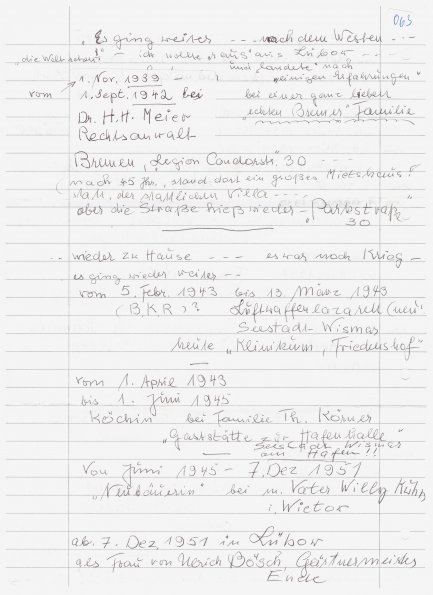 063
Es ging weiter --- nach dem Westen ---
"die Welt schau!" - ich wollte "raus" aus Lübow ---
und "landete" nach
1. Nov. 1939 - "einigen Erfahrungen"
vom 1. Sept. 1942 bei bei einer ganz lieben
Dr. H.H. Meier "echten Bremer" Familie
Rechtsanwalt
Bremen, "Legion Condorstr." 30
(nach 45 Jhr., stand dort ein großes Mietshaus!
statt, der stattlichen Villa ----
aber die Straße hieß wieder - "Parkstraße"
30
.. wieder zu Hause --- es war noch Krieg -
es ging wieder weiter --
vom 5. Febr. 1943 bis 13. März 1943
(B.K.R)? Luftwaffenlazarett (neu)
Seestadt Wismar
heute "Klinikum, Friedenshof"
vom 1. April 1943
bis 1. Juni 1945
Köchin bei Familie Th. Körner
"Gaststätte zur Hafenhalle"
Seestadt Wismar
am Hafen!!
Von Juni 1945 - 7. Dez 1951
"Neubäuerin" bei m. Vater Willy
i, Wietow
ab. 7. Dez, 1951 in Lübow
als Frau von Ulrich Bösch, Gärtnermeister
Ende